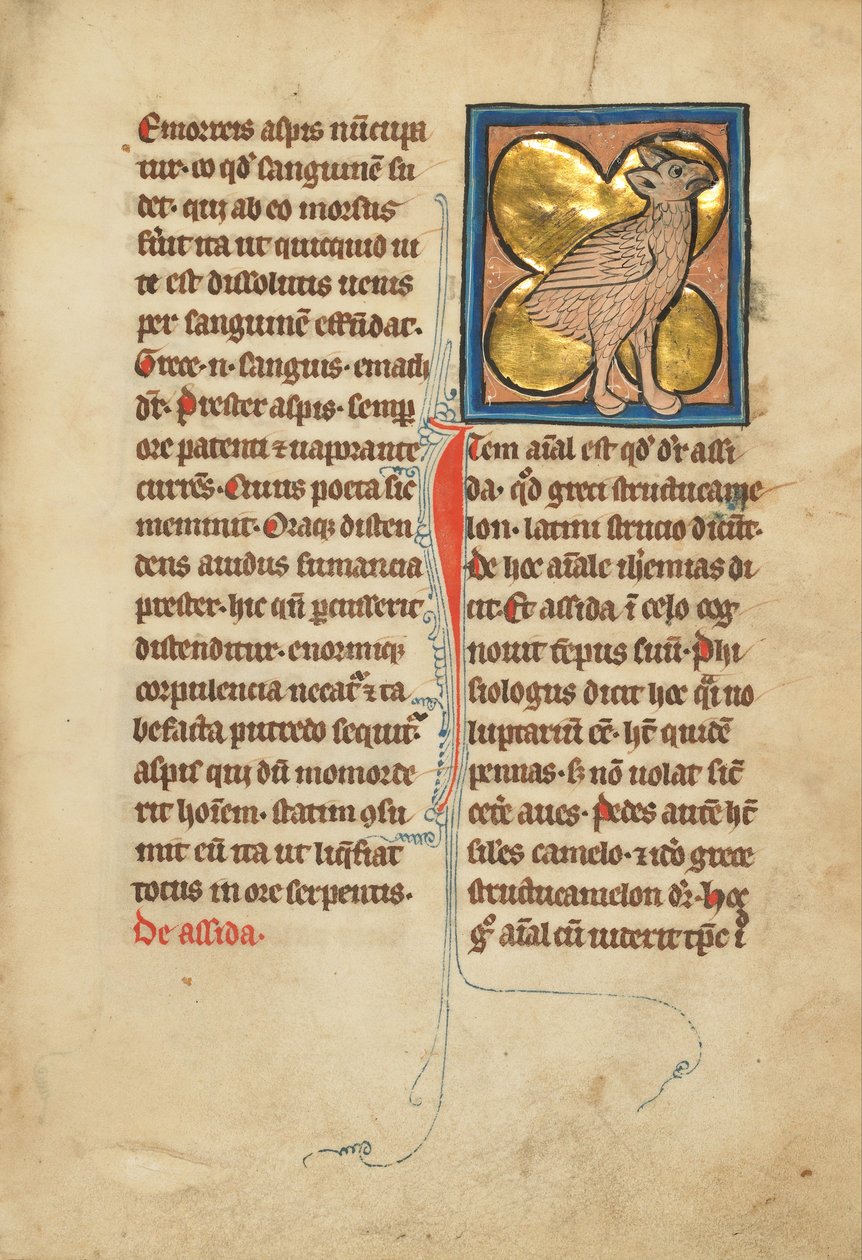 Emorreis aspis nūcupa
tur· eo qd' sanguinē su
det· qui ab eo morsus
fu'it ita ut quicquid ui
te est dissolutis uenis
per sanguinē effūdat·
Grece·n· sanguis· emath
dr̄· Prester aspis· semp̱
ore patenti ⁊ uaporante
currēs· Cuius poeta sic
meminit· Oraqꝫ disten
dens auidus fumancia
prester· hic qn̄ p̱cusserit
distenditur· enormiqꝫ
corpulencia necat᷑ ⁊ ta
befacta putredo sequit᷑·
aspis qui dū momorde
rit hoīem· statim ꝯsu
mit eū ita ut liq̄fiat
totus in ore serpentis·
De assida·
Item aīal est qd' d'r assi
da· qͦd greci structucame
lon· latini strucio dicūt·
De hoc aīale iħemias di
cit· Et assida ī celo cog
nouit tēpus suū· Phi
siologus dicit hoc qᷓi uo
luptariū eē· ħt quidē
pennas· sꝫ nō uolat sic̄
cet'e aues· Pedes autē ħt
sil'es camelo· ⁊ ido grece
structucamelon dr̄· Hoc
gͦ aīal cū uiderit tp̄c iͦ